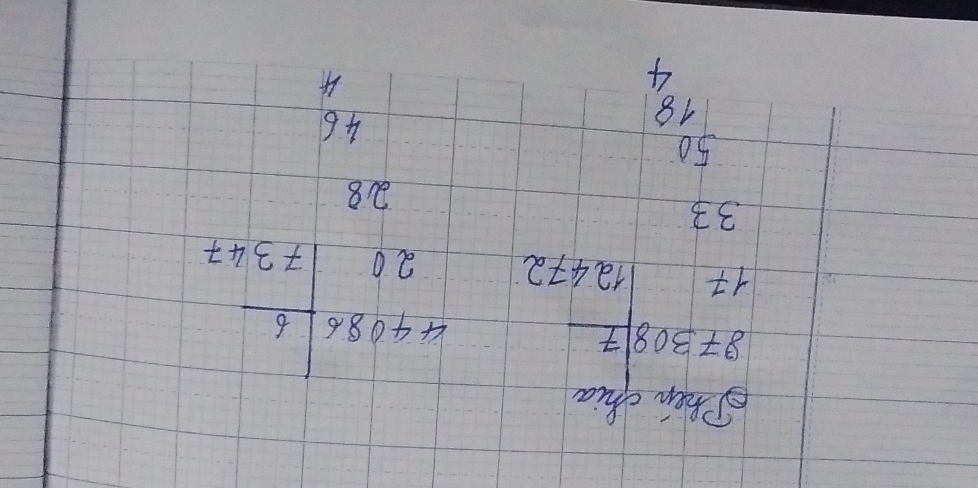 Phép chia
87308 7 44086 6
17 12472 20 7347
33 28
50 46
18 4
4